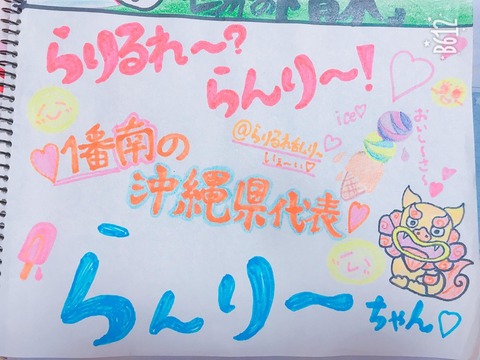 らりるれ〜?
らんり〜!
ice♡
おいし〜さ〜♡
@らりるれらんり〜
いぇ〜い♡
1番南の
沖縄県代表
らんり〜
ちゃん♡
B612